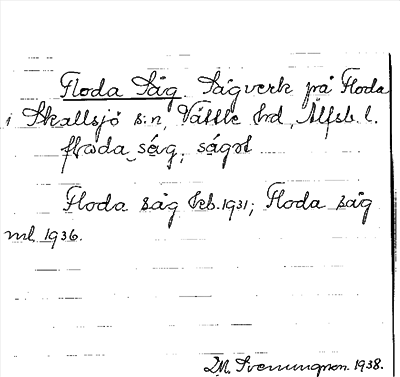 Floda Såg. Sågverk på Floda
i Skallsjö s:n, Vättle hd, Älfsb. l.
floda ság, ságət
Floda såg Jeb. 1931; Floda såg
ml. 1936.
M. Svenungson. 1938.